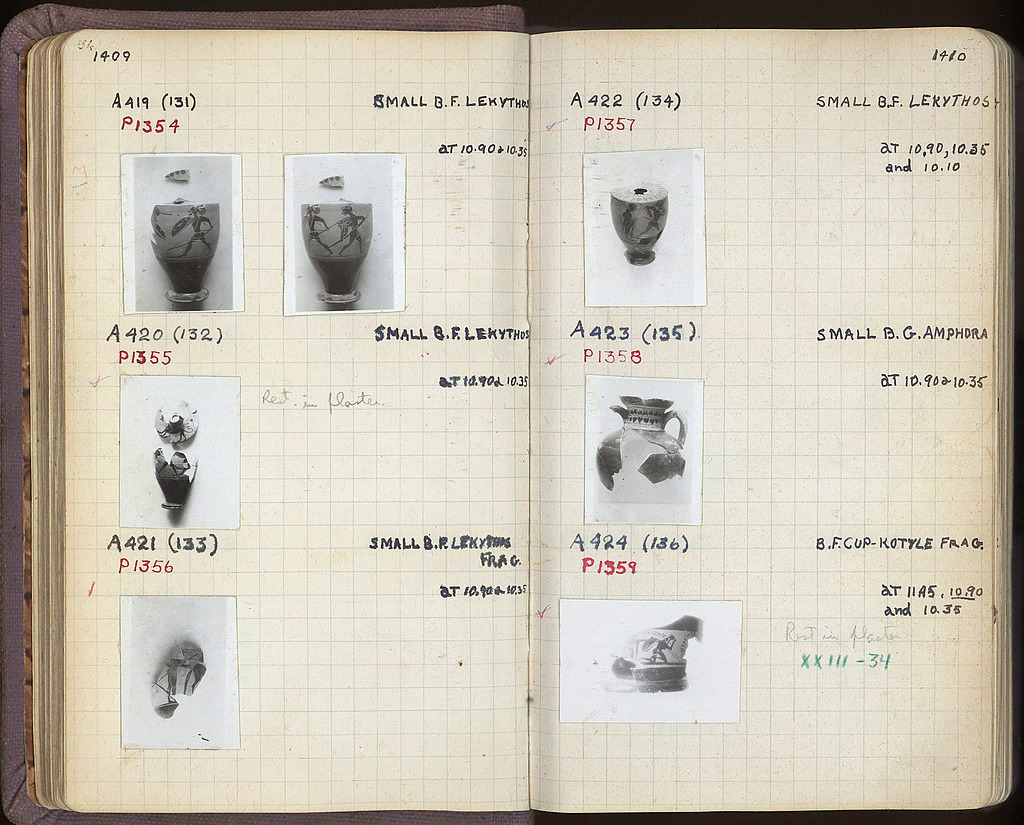 1409
A419 (131) SMALL B.F. LEKYTHOS
P1354
aT 10.90 & 10.35
A420 (132) SMALL B.F. LEKYTHOS
P1355
aT 10.90 & 10.35
Rest. in plaster.
A421 (133) SMALL B.F. LEKYTHOS
FRAG.
P1356
aT 10.90 & 10.35
1410
A422 (134) SMALL B.F. LEKYTHOS
P1357
aT 10.90, 10.35
and 10.10
A423 (135) SMALL B.G. AMPHORA
P1358
aT 10.90 & 10.35
A424 (136) B.F. CUP-KOTYLE FRAG.
P1359
aT 11.45, 10.90
and 10.35
Rest in plaster
XXIII-34